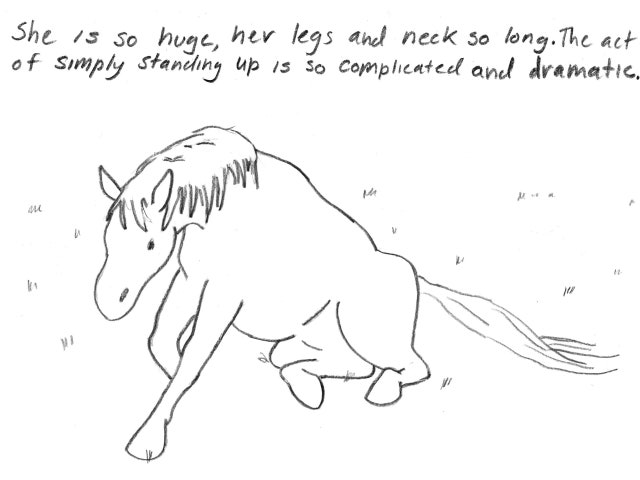 She is so huge, her legs and neck so long. The act
of simply standing up is so complicated and dramatic.